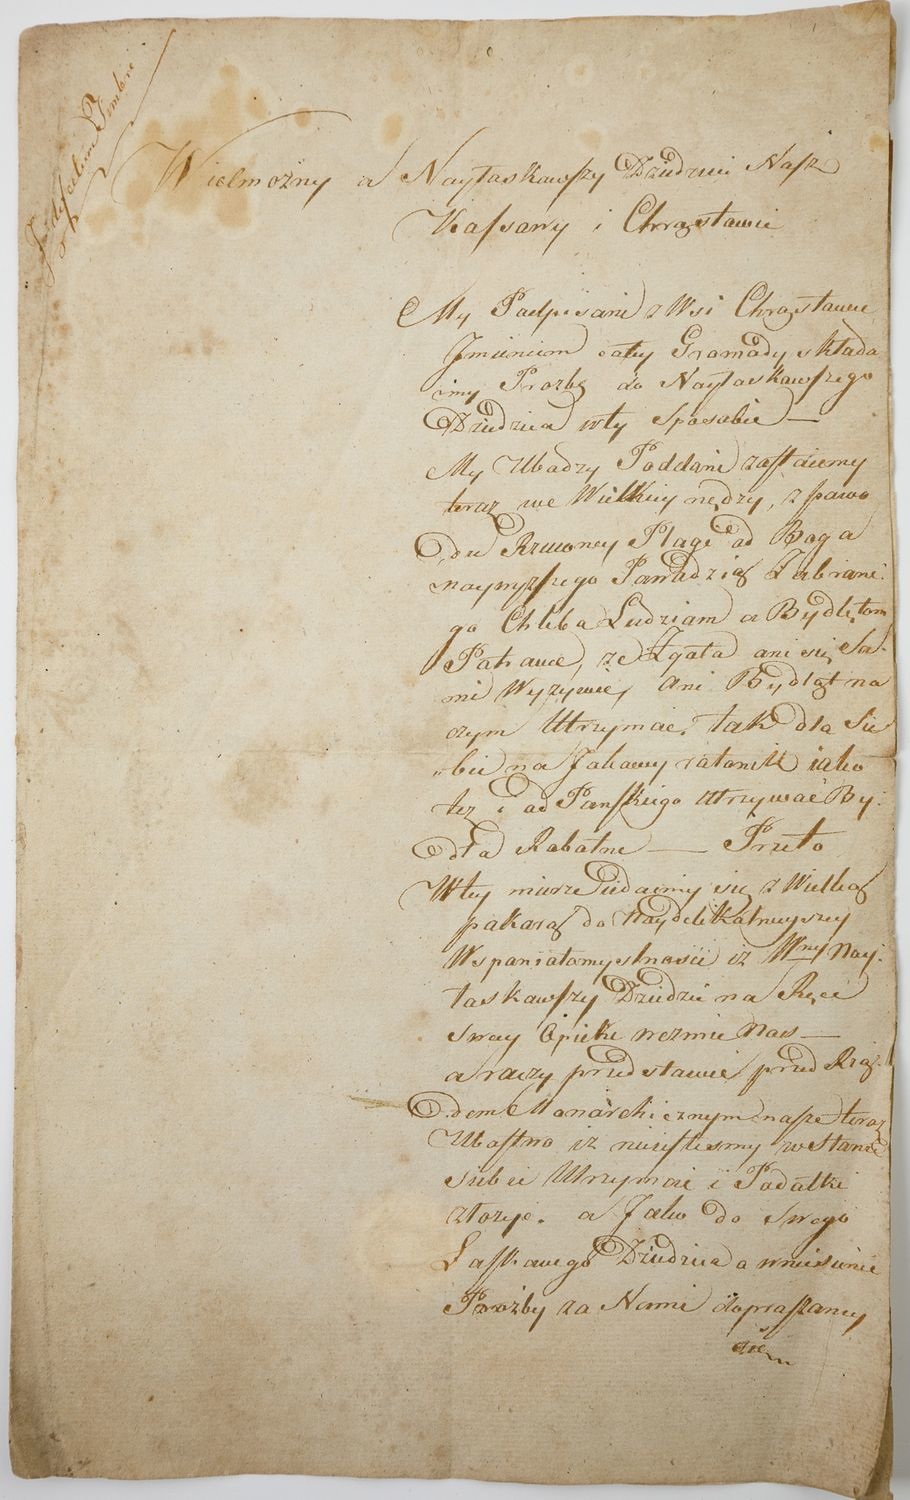 Wielmożny a Nayłaskawszy Dziedzic Nasz
Kassawy i Chrząstawie
My Padpisani z Wsi Chrząstawie
Jmieniem całey Gromady składa
imy Prozbę do Nayłaskawszego
Dziedzica wty Sposabie —
My Ubadzy Poddani zastaiemy
teraz we Wielkiey nędzy, z pawo
du Rzuconey Plagi ad Boga
naywyszszego Pawadzią Zabrani-
go Chleba Ludziam a Bydlętom
Patrawe, ze Zgała ani się Sa-
mi Wyzywić, Ani Bydląt na
czym Utrzymac. tak dla Sie
bie na Jakawy ratonek iako
tez i ad Panskiego Utrzywać By-
dła Rabatne — Prze to
Wtey mierze Udaimy się z Wielką
pakarą do Naydelikatnieyszey
Wspaniałomyslnasci iz Wny Nay-
łaskawszy Dziedzic na Ręce
Swey Opieki wezmie Nas —
a raczy przedstawić przed Rzą-
dem Monarchicznym nasze teraz
Ubastwo iz nieiestesmy wStanie
siebie Utrzymać i Padatki
złozyc. a Jako do Swego
Łaskawego Dziedzica a wniesienie
Prozby za Nami dopraszamy
się